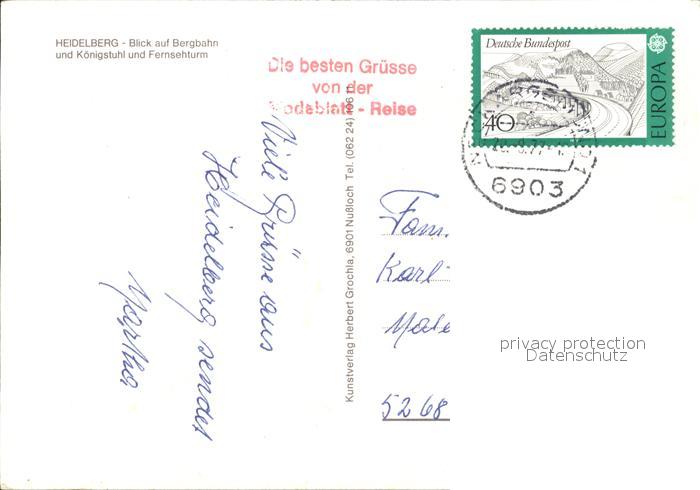 HEIDELBERG - Blick auf Bergbahn
und Königstuhl und Fernsehturm
Die besten Grüsse
von der
Modeblatt - Reise
Deutsche Bundespost
40
EUROPA
6903
Viele Grüsse aus
Heidelberg sendet
Martha
Kunstverlag Herbert Grochla, 6901 Nußloch Tel. (062 24)
Fam.
Karl
5268
privacy protection
Datenschutz